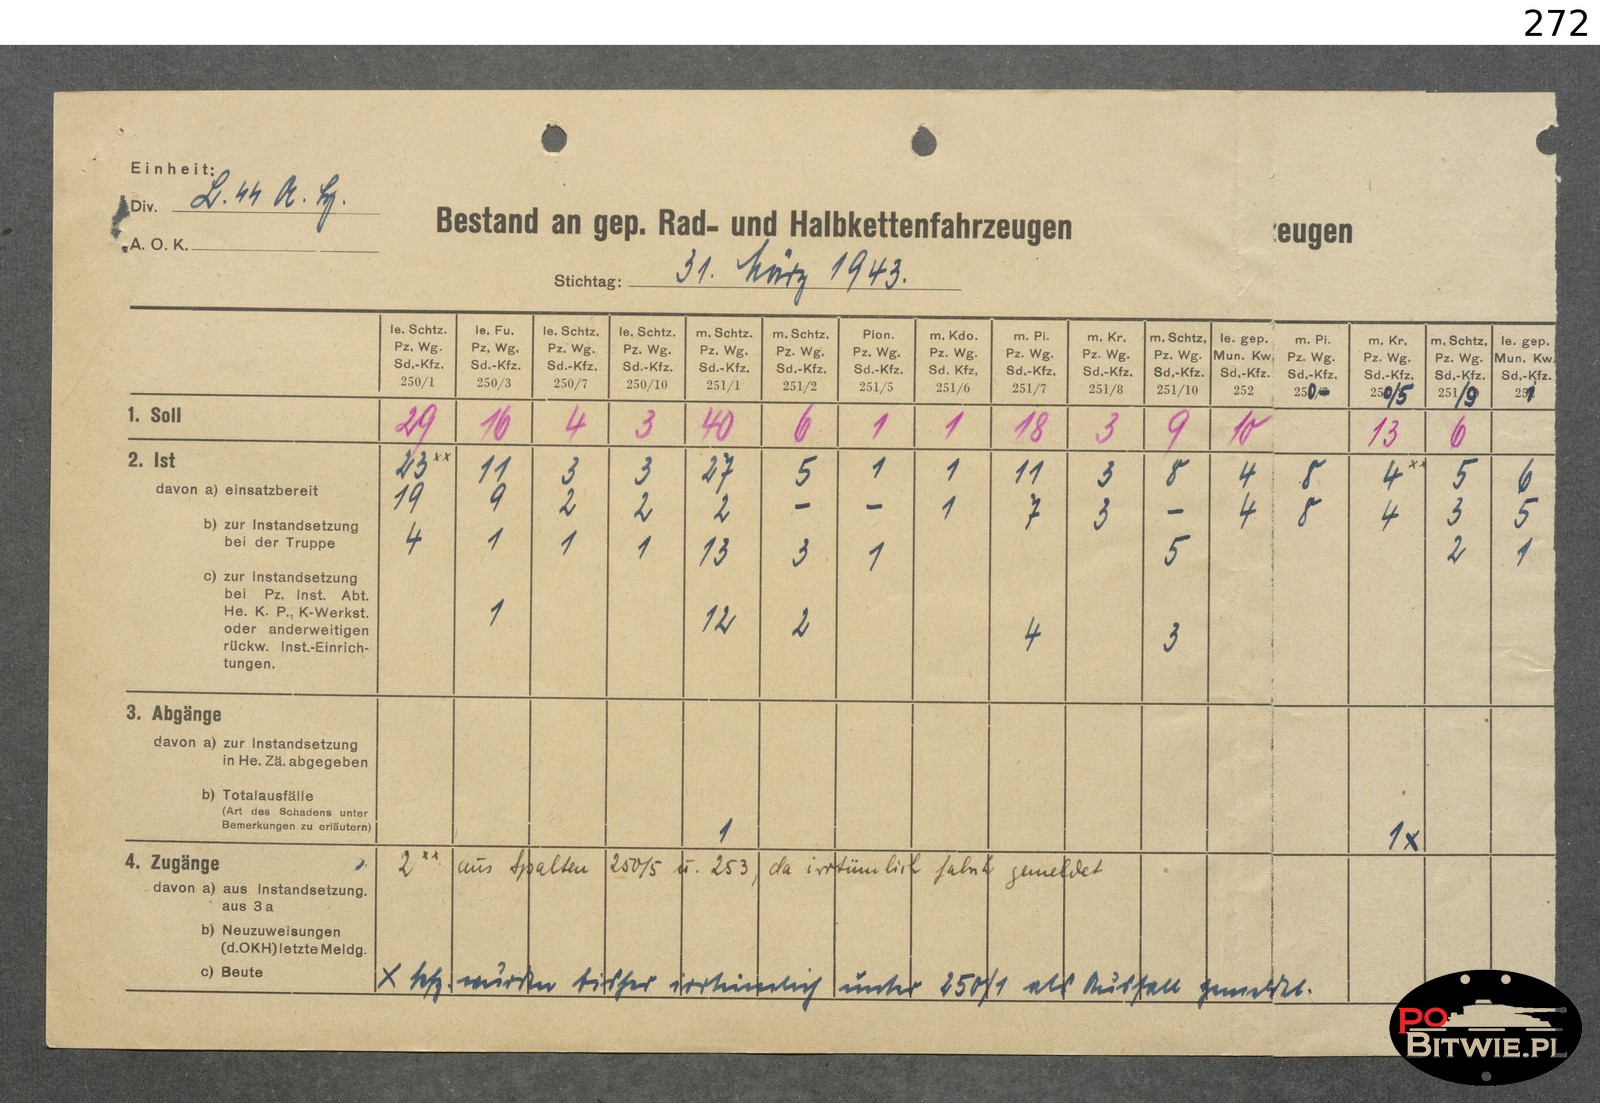 272
Einheit:
Div. L. SS A. H.
A. O. K.
Bestand an gep. Rad- und Halbkettenfahrzeugen
eugen
Stichtag: 31. März 1943.
le. Schtz. Pz. Wg. Sd.-Kfz. 250/1
le. Fu. Pz. Wg. Sd.-Kfz. 250/3
le. Schtz. Pz. Wg. Sd.-Kfz. 250/7
le. Schtz. Pz. Wg. Sd.-Kfz. 250/10
m. Schtz. Pz. Wg. Sd.-Kfz. 251/1
m. Schtz. Pz. Wg. Sd.-Kfz. 251/2
Pion. Pz. Wg. Sd.-Kfz. 251/5
m. Kdo. Pz. Wg. Sd. Kfz. 251/6
m. Pi. Pz. Wg. Sd.-Kfz. 251/7
m. Kr. Pz. Wg. Sd.-Kfz. 251/8
m. Schtz. Pz. Wg. Sd.-Kfz. 251/10
le. gep. Mun. Kw. Sd.-Kfz. 252
m. Pi. Pz. Wg. Sd.-Kfz. 250-
m. Kr. Pz. Wg. Sd.-Kfz. 250/5
m. Schtz. Pz. Wg. Sd.-Kfz. 251/9
le. gep. Mun. Kw. Sd.-Kfz.
1. Soll 29 16 4 3 40 6 1 1 18 3 9 10 13 6
2. Ist 23xx 11 3 3 27 5 1 1 11 3 8 4 8 4xx 5 6
davon a) einsatzbereit 19 9 2 2 2 – – 1 7 3 – 4 8 4 3 5
b) zur Instandsetzung
bei der Truppe 4 1 1 1 13 3 1 5 2 1
c) zur Instandsetzung
bei Pz. Inst. Abt.
He. K. P., K-Werkst. 1 12 2
oder anderweitigen 4 3
rückw. Inst.-Einrich-
tungen.
3. Abgänge
davon a) zur Instandsetzung
in He. Zä. abgegeben
b) Totalausfälle
(Art des Schadens unter
Bemerkungen zu erläutern) 1 1x
4. Zugänge 2xx aus Spalten 250/5 u. 253, da irrtümlich falsch gemeldet
davon a) aus Instandsetzung.
aus 3a
b) Neuzuweisungen
(d.OKH) letzte Meldg.
c) Beute x Kfz. wurden bisher irrtümlich unter 250/1 als Ausfall gemeldet.
PO
BITWIE.PL